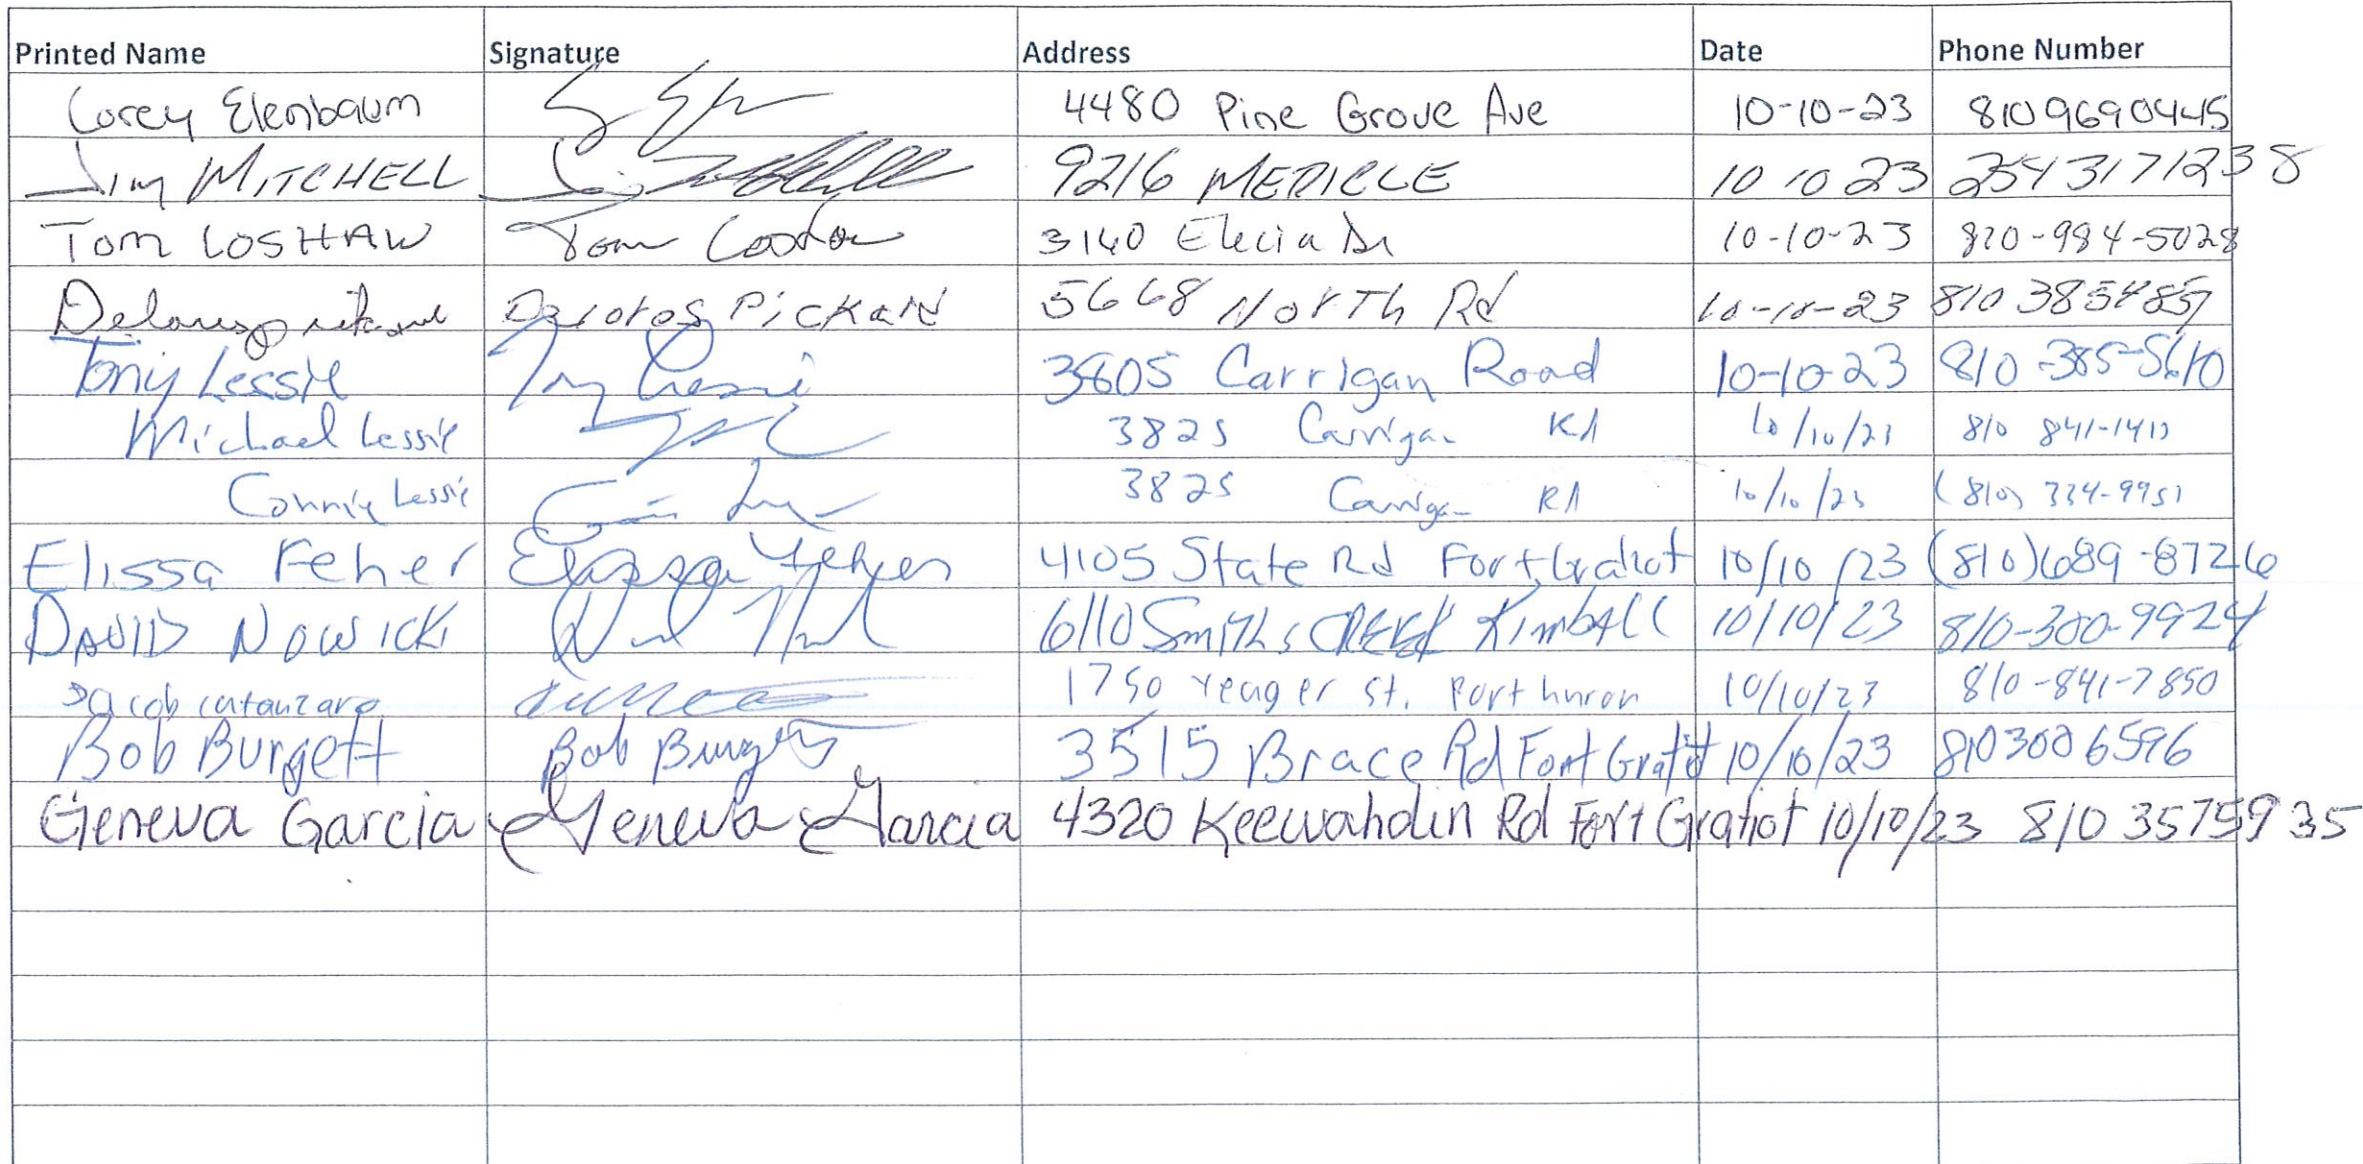 Printed Name Signature Address Date Phone Number
Corey Elenbaum 4480 Pine Grove Ave 10-10-23 8109690445
Jim MITCHELL 9216 MERICLE 10 10 23 2543171238
Tom LOSHAW Tom Loshaw 3140 Elecia Dr 10-10-23 810-984-5028
Delores Pickard Delores Pickard 5668 North Rd 10-10-23 810 3854857
Tony Lessie Tony Lessie 3805 Carrigan Road 10-10-23 810-385-5610
Michael Lessie 3825 Carrigan Rd 10/10/23 810 841-1413
Connie Lessie 3825 Carrigan Rd 10/10/23 (810) 334-9951
Elissa Feher Elissa Feher 4105 State Rd Fort Gratiot 10/10/23 (810)689-8726
DAVID NOWICKI 6110 Smiths CREEK Kimball 10/10/23 810-300-9924
Jacob Catanzaro 1750 Yeager St. Port huron 10/10/23 810-841-7850
Bob Burgett Bob Burgett 3515 Brace Rd Fort Gratiot 10/10/23 8103006596
Geneva Garcia Geneva Garcia 4320 Keewahdin Rd Fort Gratiot 10/10/23 810 3575935